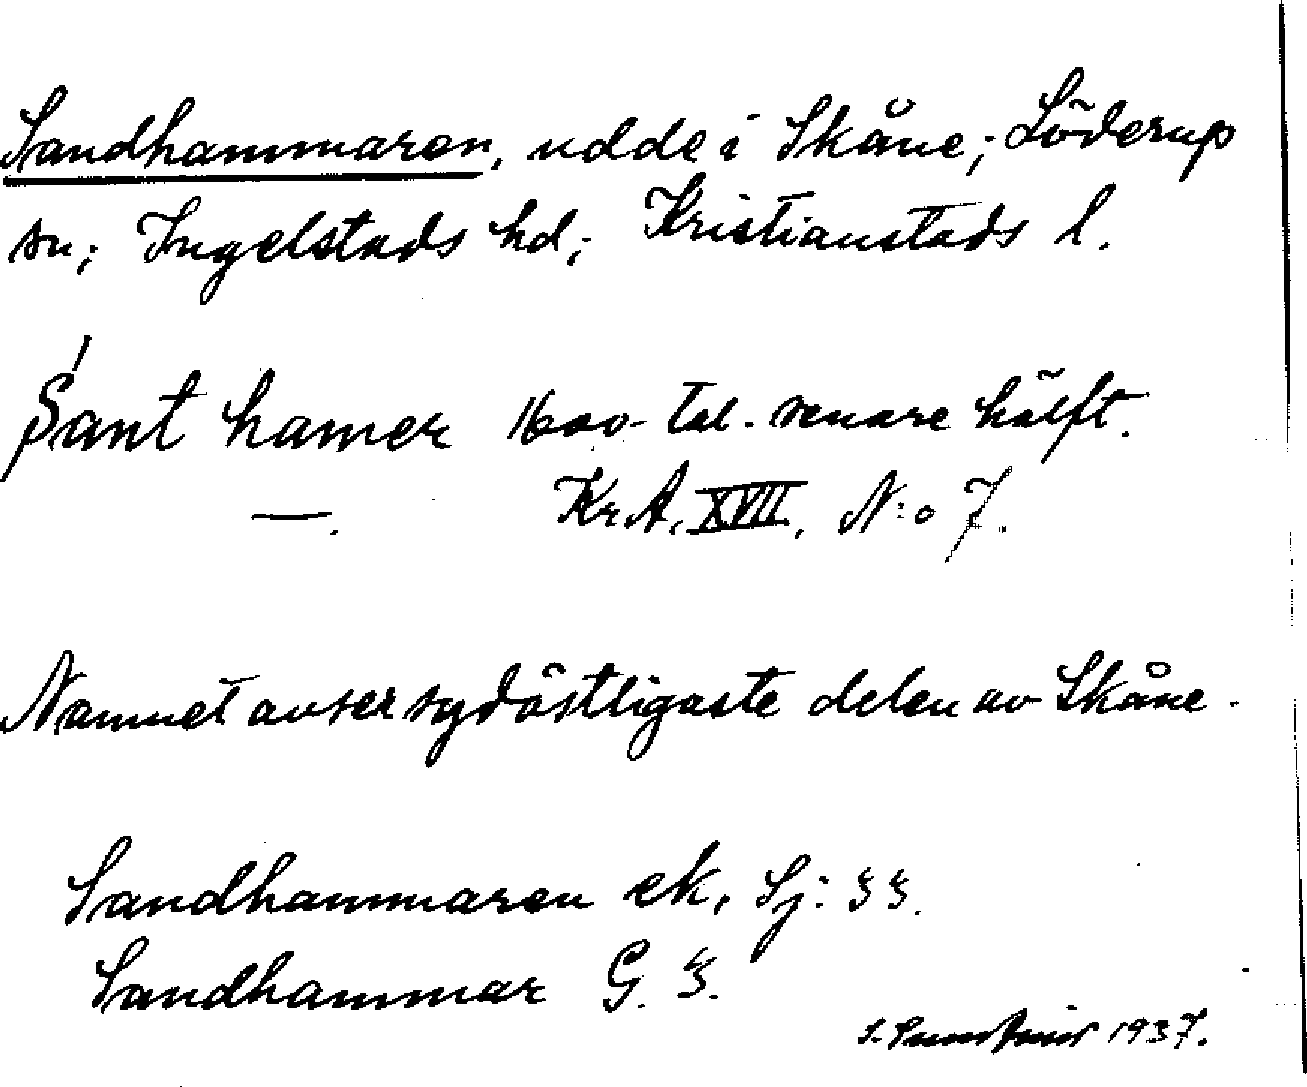 Sandhammaren, udde i Skåne; Löderup
sn; Ingelstads hd; Kristianstads l.
Sant hamer 1600-tal. senare hälft.
—. Kr.A. XVII, N:o 7.
Namnet avser sydöstligaste delen av Skåne.
Sandhammaren ek, Sj: 55.
Sandhammar G. 5.
1937.